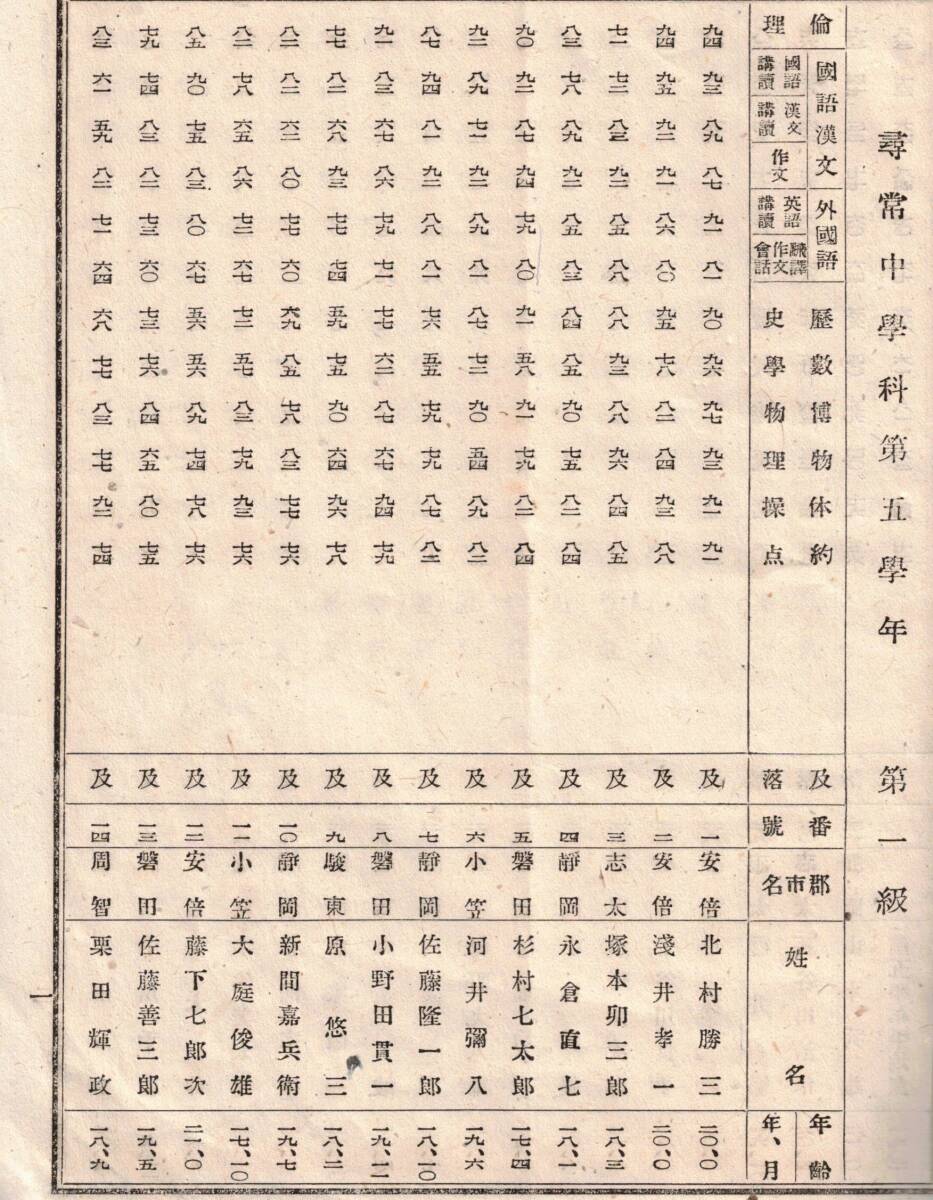 尋常中學科第五學年 第一級
倫理 國語漢文 國語講讀 漢文講讀 作文 外國語 英語講讀 飜譯作文會話 歷史 數學 博物 物理 体操 約点 及落 番號 郡市名 姓名 年齡 年、月
九四 九三 八九 八七 九一 八一 九〇 九六 九七 九三 九一 九一 及 一 安倍 北村勝三 二〇、〇
九四 九五 九二 九一 八六 八〇 九五 七八 八二 八四 九三 八八 及 二 安倍 淺井孝一 二〇、〇
七一 七三 八三 九二 八五 八八 八八 九三 八八 九六 八四 八五 及 三 志太 塚本卯三郎 一八、三
八三 七八 八九 九二 八五 八三 八四 八五 九〇 七五 八二 八四 及 四 靜岡 永倉直七 一八、一
九〇 九二 八七 九四 七九 八〇 九一 五八 九一 七九 八二 八四 及 五 磐田 杉村七太郎 一七、四
九二 八九 七一 九二 八九 八一 八七 七三 九〇 五四 八九 八二 及 六 小笠 河井彌八 一九、六
八七 九四 八一 九二 八八 八一 七六 五五 七九 七九 八七 八二 及 七 靜岡 佐藤隆一郎 一八、一〇
九一 八三 六七 八六 七七 七一 七七 六二 八七 六七 九四 七九 及 八 磐田 小野田貫一 一九、一一
七七 八三 六八 九三 七七 七四 五九 七五 九〇 六四 九六 七八 及 九 駿東 原悠三 一八、二
八二 八二 六二 八〇 七七 六〇 六九 八五 七八 八三 七七 七六 及 一〇 靜岡 新間嘉兵衛 一九、七
八二 七八 六五 八六 七三 六七 七三 五七 八三 七九 九三 七六 及 一一 小笠 大庭俊雄 一七、一〇
八五 九〇 七五 八三 八〇 六七 五六 五六 八九 七四 七八 七六 及 一二 安倍 藤下七郎次 二一、〇
七九 七四 八三 八二 七三 六〇 七三 七六 八四 六五 八〇 七五 及 一三 磐田 佐藤善三郎 一九、五
八三 六一 五九 八二 七一 六四 六八 七七 八三 七七 九二 七四 及 一四 周智 栗田輝政 一八、九
一